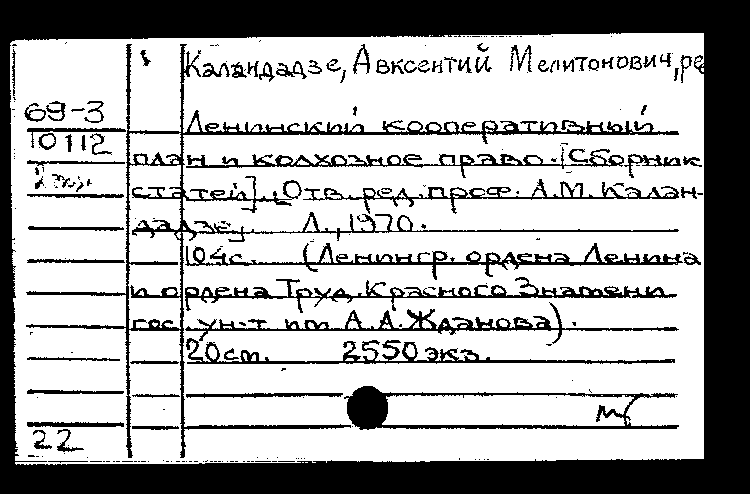 Каландадзе, Авксентий Мелитонович, ре
69-3
10112
2 экз.
Ленинский кооперативный
план и колхозное право. [Сборник
статей]. Отв. ред. проф. А.М. Калан-
дадзе. Л., 1970.
104с. (Ленингр. ордена Ленина
и ордена Труд. Красного Знамени
гос. ун-т им А.А. Жданова).
20см. 2550 экз.
22